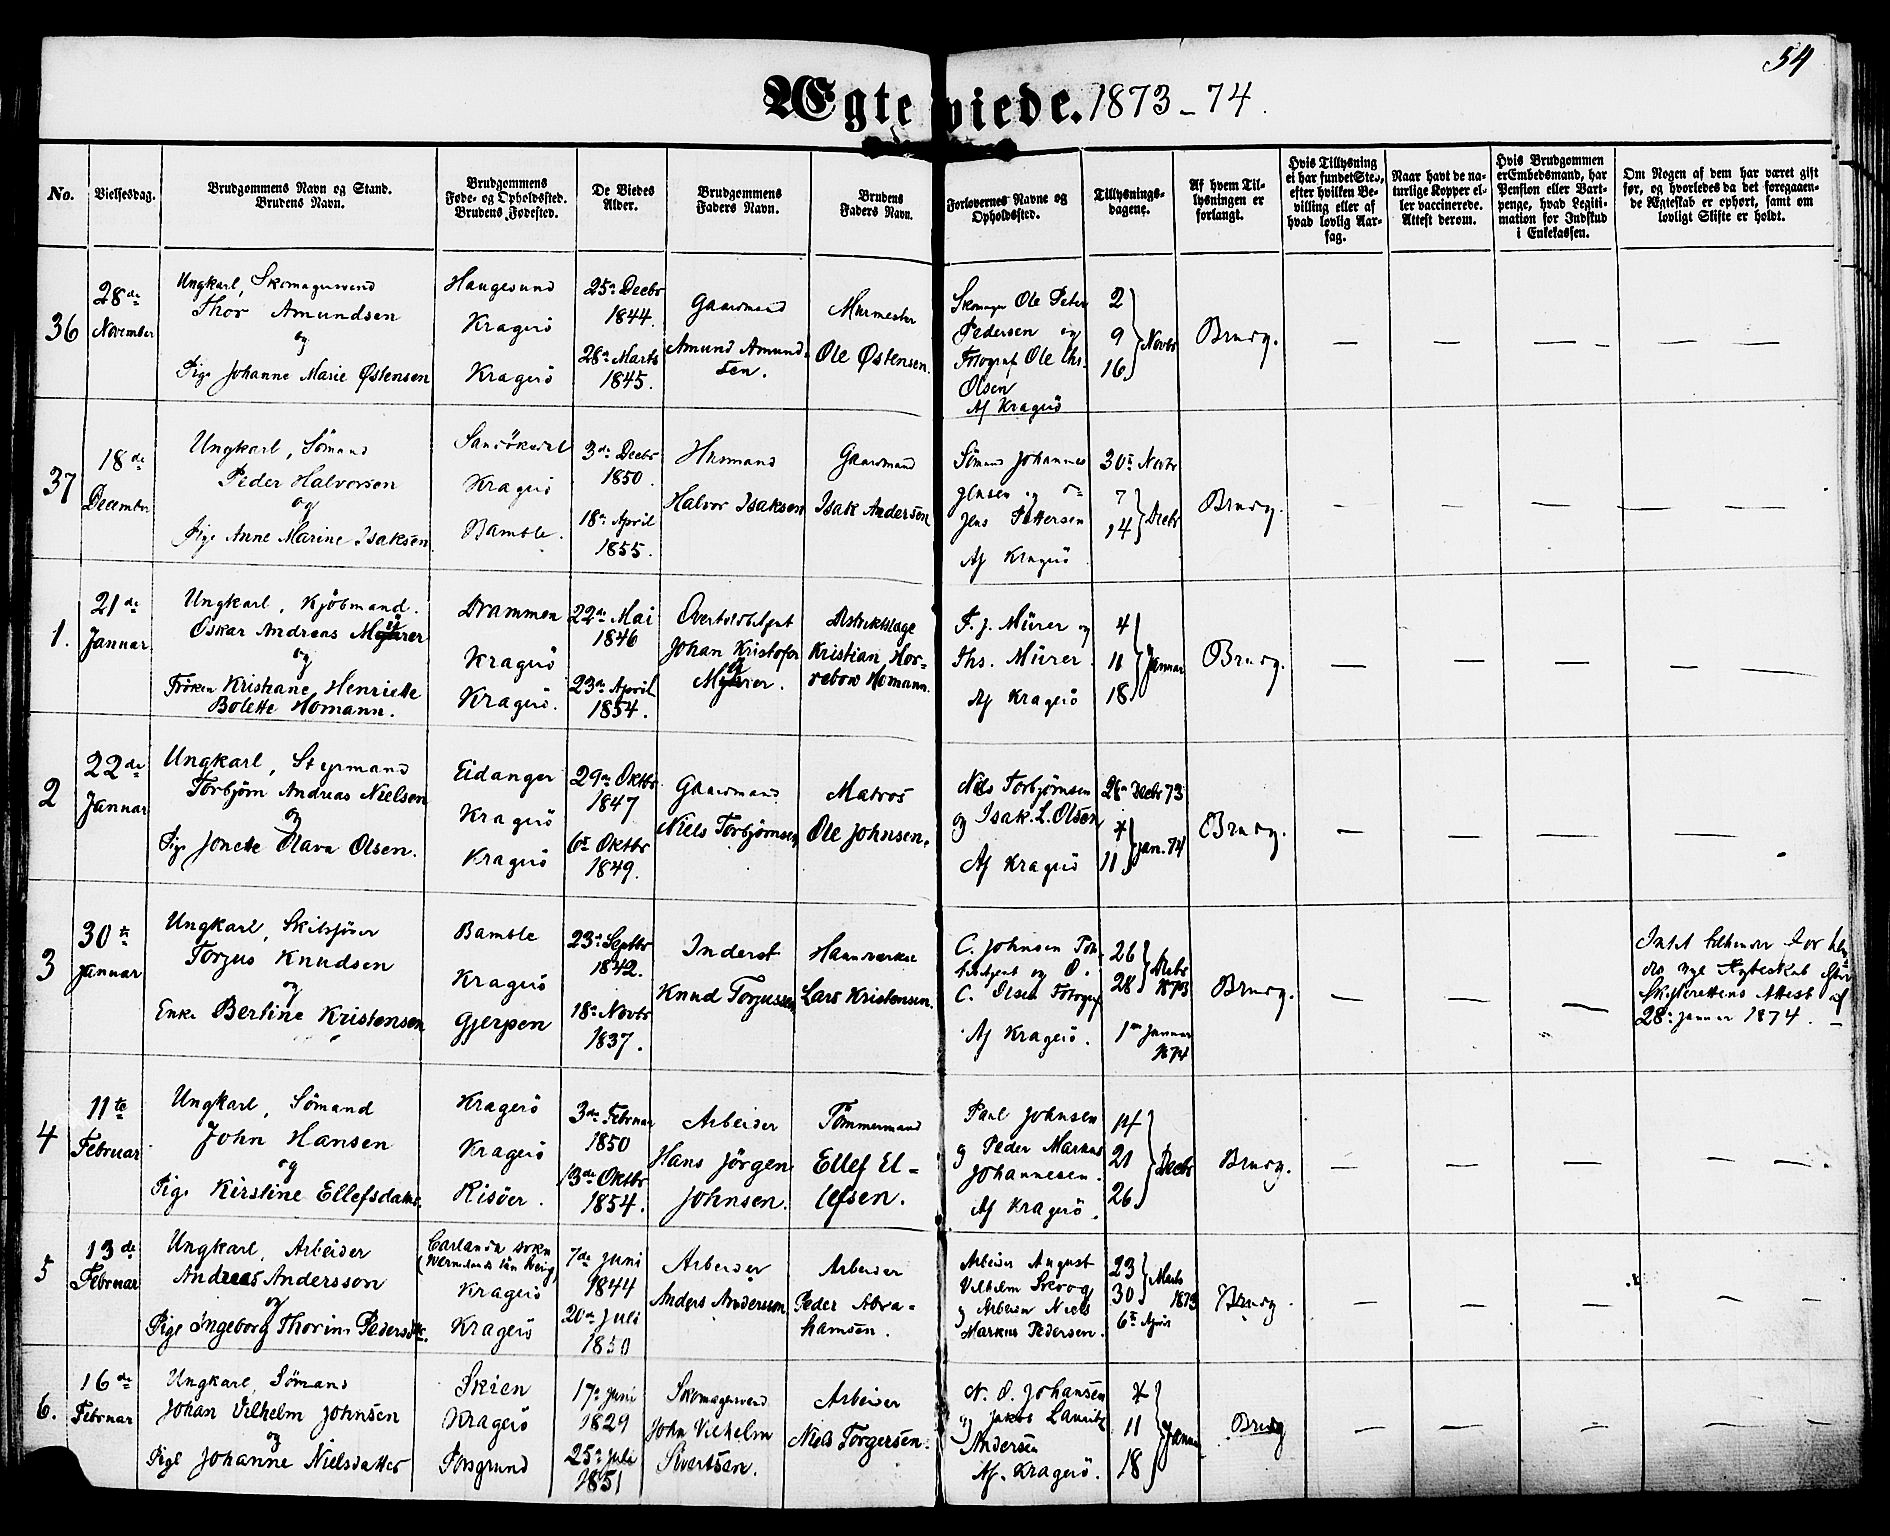 54
Ægteviede. 1873-74.
No.
Vielsesdag.
Brudgommens Navn og Stand.
Brudens Navn.
Brudgommens
Føde- og Opholdssted.
Brudens Fødested.
De Viedes
Alder.
Brudgommens
Faders Navn.
Brudens
Faders Navn.
Forlovernes Navne og
Opholdssted.
Tillysnings-
dagene.
Af hvem Til-
lysningen er
forlangt.
Hvis Tillysning
ei har fundet Sted,
efter hvilken Be-
villing eller af
hvad lovlig Aar-
sag.
Naar havt de na-
turlige Kopper el-
ler vaccinerede.
Attest derom.
Hvis Brudgommen
er Embedsmand, har
Pension eller Vart-
penge, hvad Legiti-
mation for Indskud
i Enkekassen.
Om Nogen af dem har været gift
før, og hvorledes da det foregaaen-
de Ægteskab er ophørt, samt om
lovligt Skifte er holdt.
36
28de
November
Ungkarl, Skomagersvend
Thor Amundsen
og
Pige Johanne Marie Østensen
Haugesund
Kragerö
Kragerö
25de Decbr
1844.
28de Marts
1845.
Gaardmand
Amund Amund-
sen.
Murmester
Ole Østensen.
Skomager Ole Peter
Pedersen og
Fotograf Ole Chr.
Olsen
Af Kragerö
2
9
16
Novbr
Brudg.
— — — — —
37
18de
December
Ungkarl, Sömand
Peder Halvorsen
og
Pige Anne Marine Isaksen
Sandökedal
Kragerö
Bamble.
3de Decbr
1850.
18de April
1855.
Husmand
Halvor Isaksen
Gaardmand
Isak Andersen
Sömand Johannes
Jens Pettersen
Af Kragerö
30te Novbr
7
14
Decbr
Brudg.
— — — — —
1.
21de
Januar
Ungkarl, Kjöbmand.
Oskar Andreas Mürer
og
Fröken Kristiane Henriette
Bolette Homann.
Drammen
Kragerö
Kragerö.
22de Mai
1846
23de April
1854.
Overtoldbetjent
Johan Kristofer
Mürer.
Distriktslæge
Kristian Hor-
rebow Homann.
F. J. Mürer og
Chs. Mürer.
Af Kragerö
4
11
18
Januar
Brudg.
— — — — —
2
22de
Januar
Ungkarl, Styrmand
Torbjörn Andreas Nielsen
og
Pige Jonette Olava Olsen.
Eidanger
Kragerö
Kragerö
29de Oktbr
1847
6te Oktbr
1849.
Gaardmand
Niels Torbjörnsen
Matros
Ole Johnsen.
Niels Torbjörnsen
og Isak. L. Olsen
Af Kragerö
28de Decbr 73
4
11
Jan. 74
Brudg.
— — — —
3
30te
Januar
Ungkarl, Skibsförer
Torjus Knudsen
og
Enke Bertine Kristensen
Bamble
Kragerö
Gjerpen
23de Septbr
1842.
18de Novbr
1837.
Inderst
Knud Torjussen
Haandværker
Lars Kristensen.
C. Johnsen Told-
betjent og O.
C. Olsen Fotograf
Af Kragerö.
26
28
Decbr
1873
1ste Januar
1874
Brudg.
— — —
Intet til Hinder for hen-
des nye Ægteskab efter
Skifterettens Attest af
28de Januar 1874. —
4
11te
Februar
Ungkarl, Sömand
John Hansen
og
Pige Kirstine Ellefsdatter
Kragerö
Kragerö
Risöer.
3de Februar
1850
13de Oktbr
1854.
Arbeider
Hans Jörgen
Johnsen.
Tömmermand
Ellef El-
lefsen.
Paul Johnsen
og Peder Markus
Johannesen.
Af Kragerö.
14
21
26
Decbr
Brudg.
— — — — —
5
13de
Februar
Ungkarl, Arbeider
Andreas Andersson
og
Pige Ingeborg Thorine Pedersdtr.
Carlanda sokn
(Wermlands län Sverig)
Kragerö
Kragerö
7de Juni
1844
20de Juli
1850
Arbeider
Anders Anderson
Arbeider
Peder Abra-
hamsen.
Arbeider August
Vilhelm Skrog
og Arbeider Niels
Markus Pedersen.
23
30
Marts
1873
6te April
Brudg.
— — — — —
6.
16de
Februar
Ungkarl, Sömand
Johan Vilhelm Johnsen
og
Pige Johanne Nielsdatter
Skien
Kragerö
Porsgrund
17de Juni
1829
25de Juli
1851
Skomagersvend
John Vilhelm
Sivertsen.
Arbeider
Niels Torgersen.
N. O. Johansen
og Jakob Lauritz
Andersen
Af. Kragerö.
4
11
18
Januar
Brudg
— — — — —